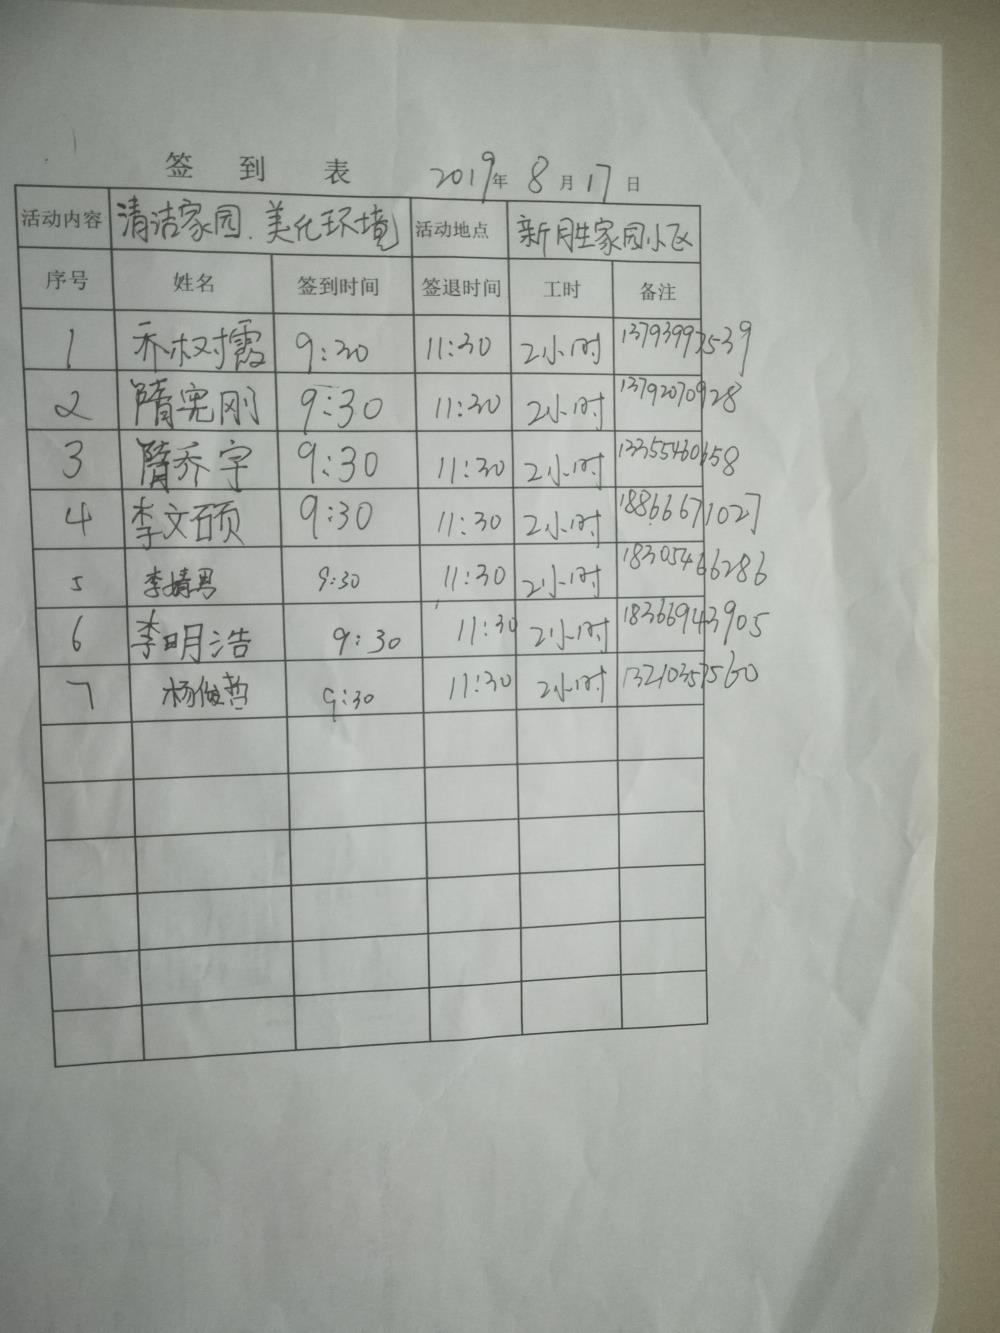 签到表 2019年8月17日
活动内容 清洁家园.美化环境 活动地点 新胜家园小区
序号 姓名 签到时间 签退时间 工时 备注
1 乔树霞 9:30 11:30 2小时 13793993539
2 隋宪刚 9:30 11:30 2小时 13792070928
3 隋乔宇 9:30 11:30 2小时 13355460658
4 李文硕 9:30 11:30 2小时 18866671027
5 李婧男 9:30 11:30 2小时 18305466286
6 李明浩 9:30 11:30 2小时 18366943905
7 杨俊哲 9:30 11:30 2小时 13210357560